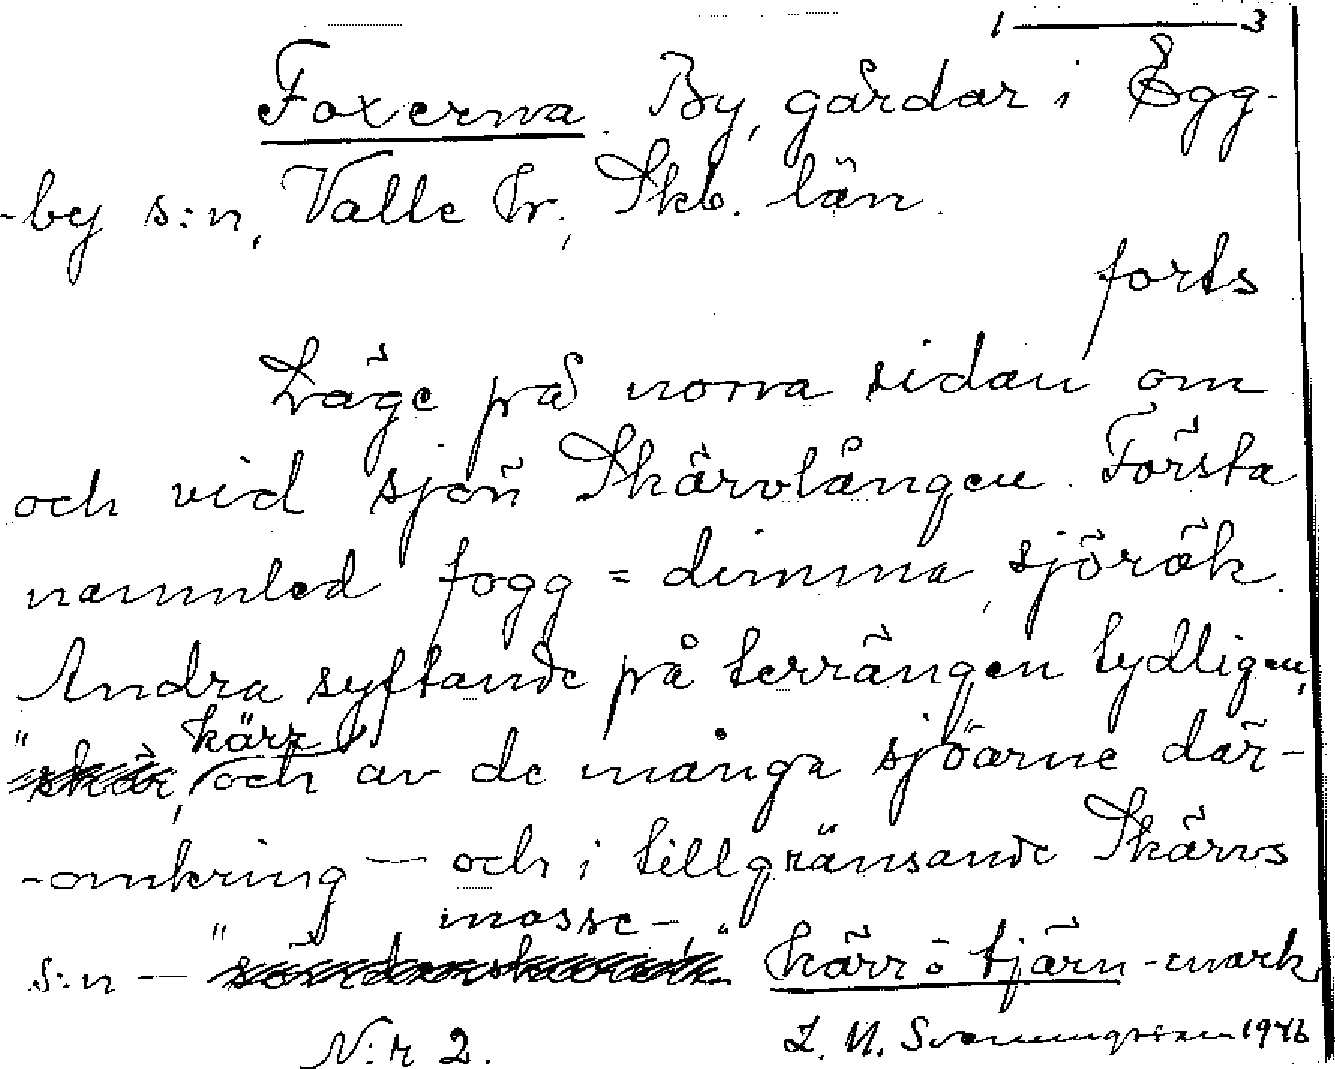 1 — 3
Foxerna. By, gårdar i Egg-
-by s:n, Valle hr, Skb. län.
forts
Läge på norra sidan om
och vid sjön Skärvlången. Första
namnled fogg = dimma, sjörök.
Andra syftande på terrängen tydligen,
" kärr
och av de många sjöarne där-
-omkring — och i tillgränsande Skärvs
mosse-,
s:n — " " kärr ö tjärn-mark
N:r 2. 1946